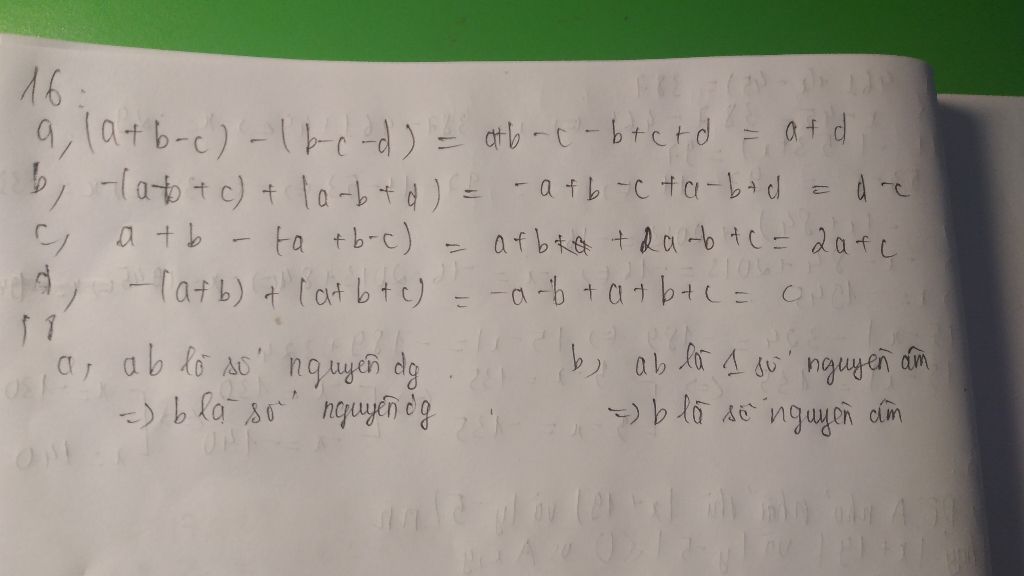 16:
a, (a+b-c) - (b-c-d) = a+b-c-b+c+d = a+d
b, -(a-b+c) + (a-b+d) = -a+b-c+a-b+d = d-c
c, a+b - (-a+b-c) = a+b + 2a-b+c = 2a+c
d, -(a+b) + (a+b+c) = -a-b+a+b+c = c
a, ab là số nguyên dg b, ab là 1 số nguyên âm
=> b là số nguyên dg => b là số nguyên âm